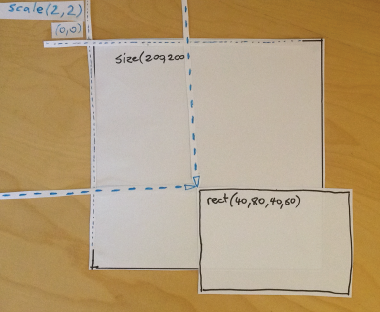 scale(2,2)
(0,0)
size(200,200
rect(40,80,40,60)